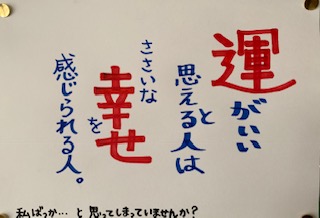 運がいい
と思える人は
ささいな
幸せを
感じられる人。
私ばっか…と思ってしまっていませんか?